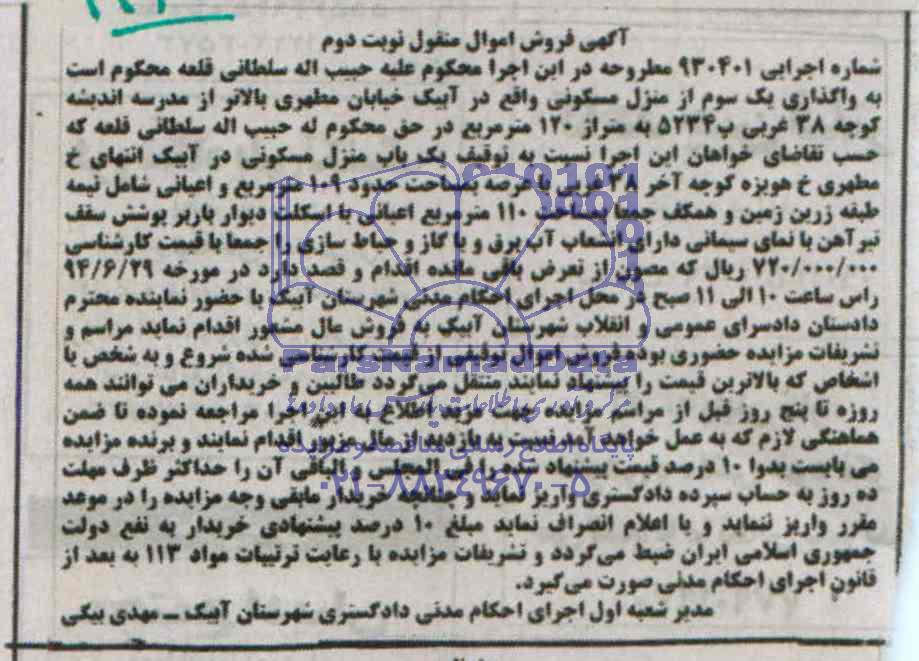 آگهی فروش اموال منقول نوبت دوم
شماره اجرایی ۹۳۰۴۰۱ مطروحه در این اجرا محکوم علیه حبیب اله سلطانی قلعه محکوم است
به واگذاری یک سوم از منزل مسکونی واقع در آبیک خیابان مطهری بالاتر از مدرسه اندیشه
کوچه ۳۸ غربی پ۵۲۳۴ به متراژ ۱۲۰ مترمربع در حق محکوم له حبیب اله سلطانی قلعه که
حسب تقاضای خواهان این اجرا نسبت به توقیف یک باب منزل مسکونی در آبیک انتهای خ
مطهری خ هویزه کوچه آخر ۳۸ غربی با عرصه بمساحت حدود ۱۰۹ مترمربع و اعیانی شامل نیمه
طبقه زرین زمین و همکف جمعا بمساحت ۱۱۰ مترمربع اعیانی با اسکلت دیوار باربر پوشش سقف
تیرآهن با نمای سیمانی دارای انشعاب آب برق و با گاز و حیاط سازی را جمعا با قیمت کارشناسی
۷۲۰/۰۰۰/۰۰۰ ریال که مصون از تعرض باقی مانده اقدام و قصد دارد در مورخه ۹۴/۶/۲۹
راس ساعت ۱۰ الی ۱۱ صبح در محل اجرای احکام مدنی شهرستان آبیک با حضور نماینده محترم
دادستان دادسرای عمومی و انقلاب شهرستان آبیک به فروش مال مشعور اقدام نماید مراسم و
تشریفات مزایده حضوری بوده فروش اموال توقیفی از قیمت کارشناسی شده شروع و به شخص یا
اشخاص که بالاترین قیمت را پیشنهاد نمایند منتقل می‌گردد طالبین و خریداران می توانند همه
روزه تا پنج روز قبل از مراسم مزایده جهت مزید اطلاع به این اجرا مراجعه نموده تا ضمن
هماهنگی لازم که به عمل خواهد آمد نسبت به بازدید از مال مزبور اقدام نمایند و برنده مزایده
می بایست بدوا ۱۰ درصد قیمت پیشنهاد شده را فی المجلس و الباقی آن را حداکثر ظرف مهلت
ده روز به حساب سپرده دادگستری واریز نماید و چنانچه خریدار مابقی وجه مزایده را در موعد
مقرر واریز ننماید و یا اعلام انصراف نماید مبلغ ۱۰ درصد پیشنهادی خریدار به نفع دولت
جمهوری اسلامی ایران ضبط می‌گردد و تشریفات مزایده با رعایت ترتیبات مواد ۱۱۳ به بعد از
قانون اجرای احکام مدنی صورت می‌گیرد.
مدیر شعبه اول اجرای احکام مدنی دادگستری شهرستان آبیک ــ مهدی بیکی
ParsNamadData
پایگاه اطلاع رسانی مناقصه و مزایده
۰۲۱-۸۸۳۴۹۶۷۰-۵